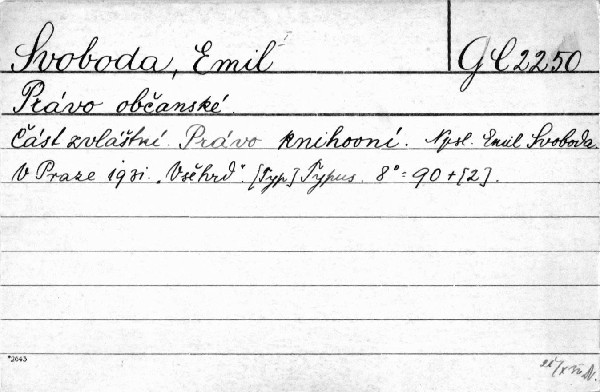 Svoboda, Emil GC2250
Právo občanské.
Část zvláštní. Právo knihovní. Npsl. Emil Svoboda.
V Praze 1931. „Všehrd“. [Typ.] Typus. 8° = 90 + [2].
*2043